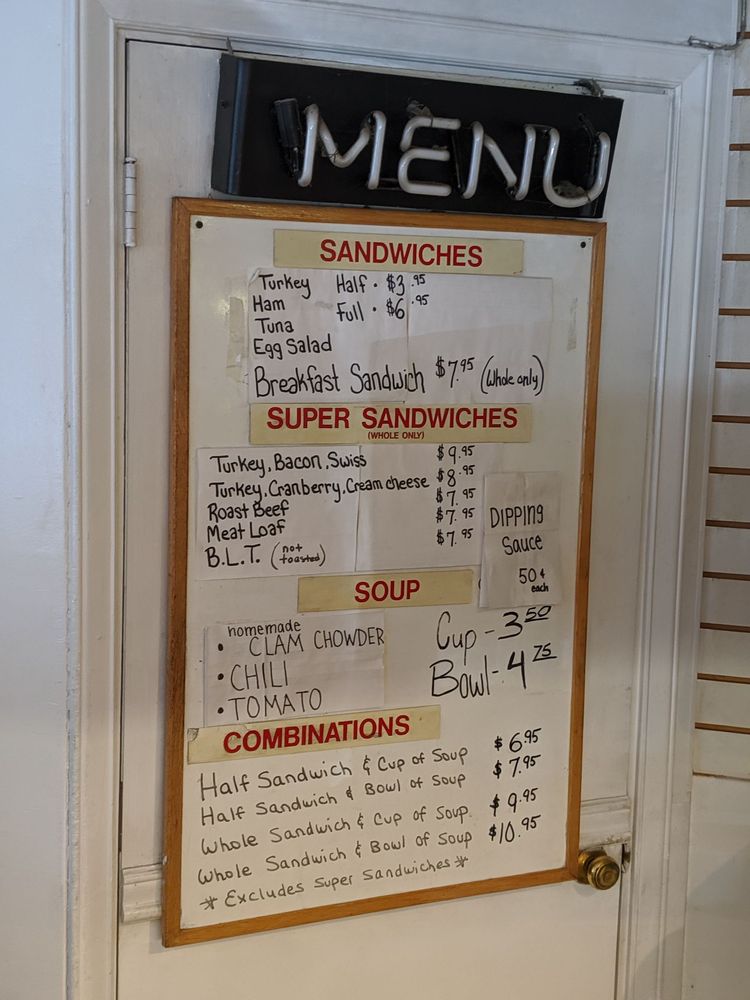 MENU
SANDWICHES
Turkey Half · $3.95
Ham Full · $6.95
Tuna
Egg Salad
Breakfast Sandwich $7.95 (Whole only)
SUPER SANDWICHES
(WHOLE ONLY)
Turkey, Bacon, Swiss $9.95
Turkey, Cranberry, Cream cheese $8.95
Roast Beef $7.95
Meat Loaf $7.95
B.L.T. (not toasted) $7.95
DIPPING
Sauce
50¢
each
SOUP
homemade
• CLAM CHOWDER
• CHILI
• TOMATO
Cup - 3 50
Bowl - 4 75
COMBINATIONS
Half Sandwich & Cup of Soup $6.95
Half Sandwich & Bowl of Soup $7.95
Whole Sandwich & Cup of Soup $9.95
Whole Sandwich & Bowl of Soup $10.95
* Excludes Super Sandwiches *